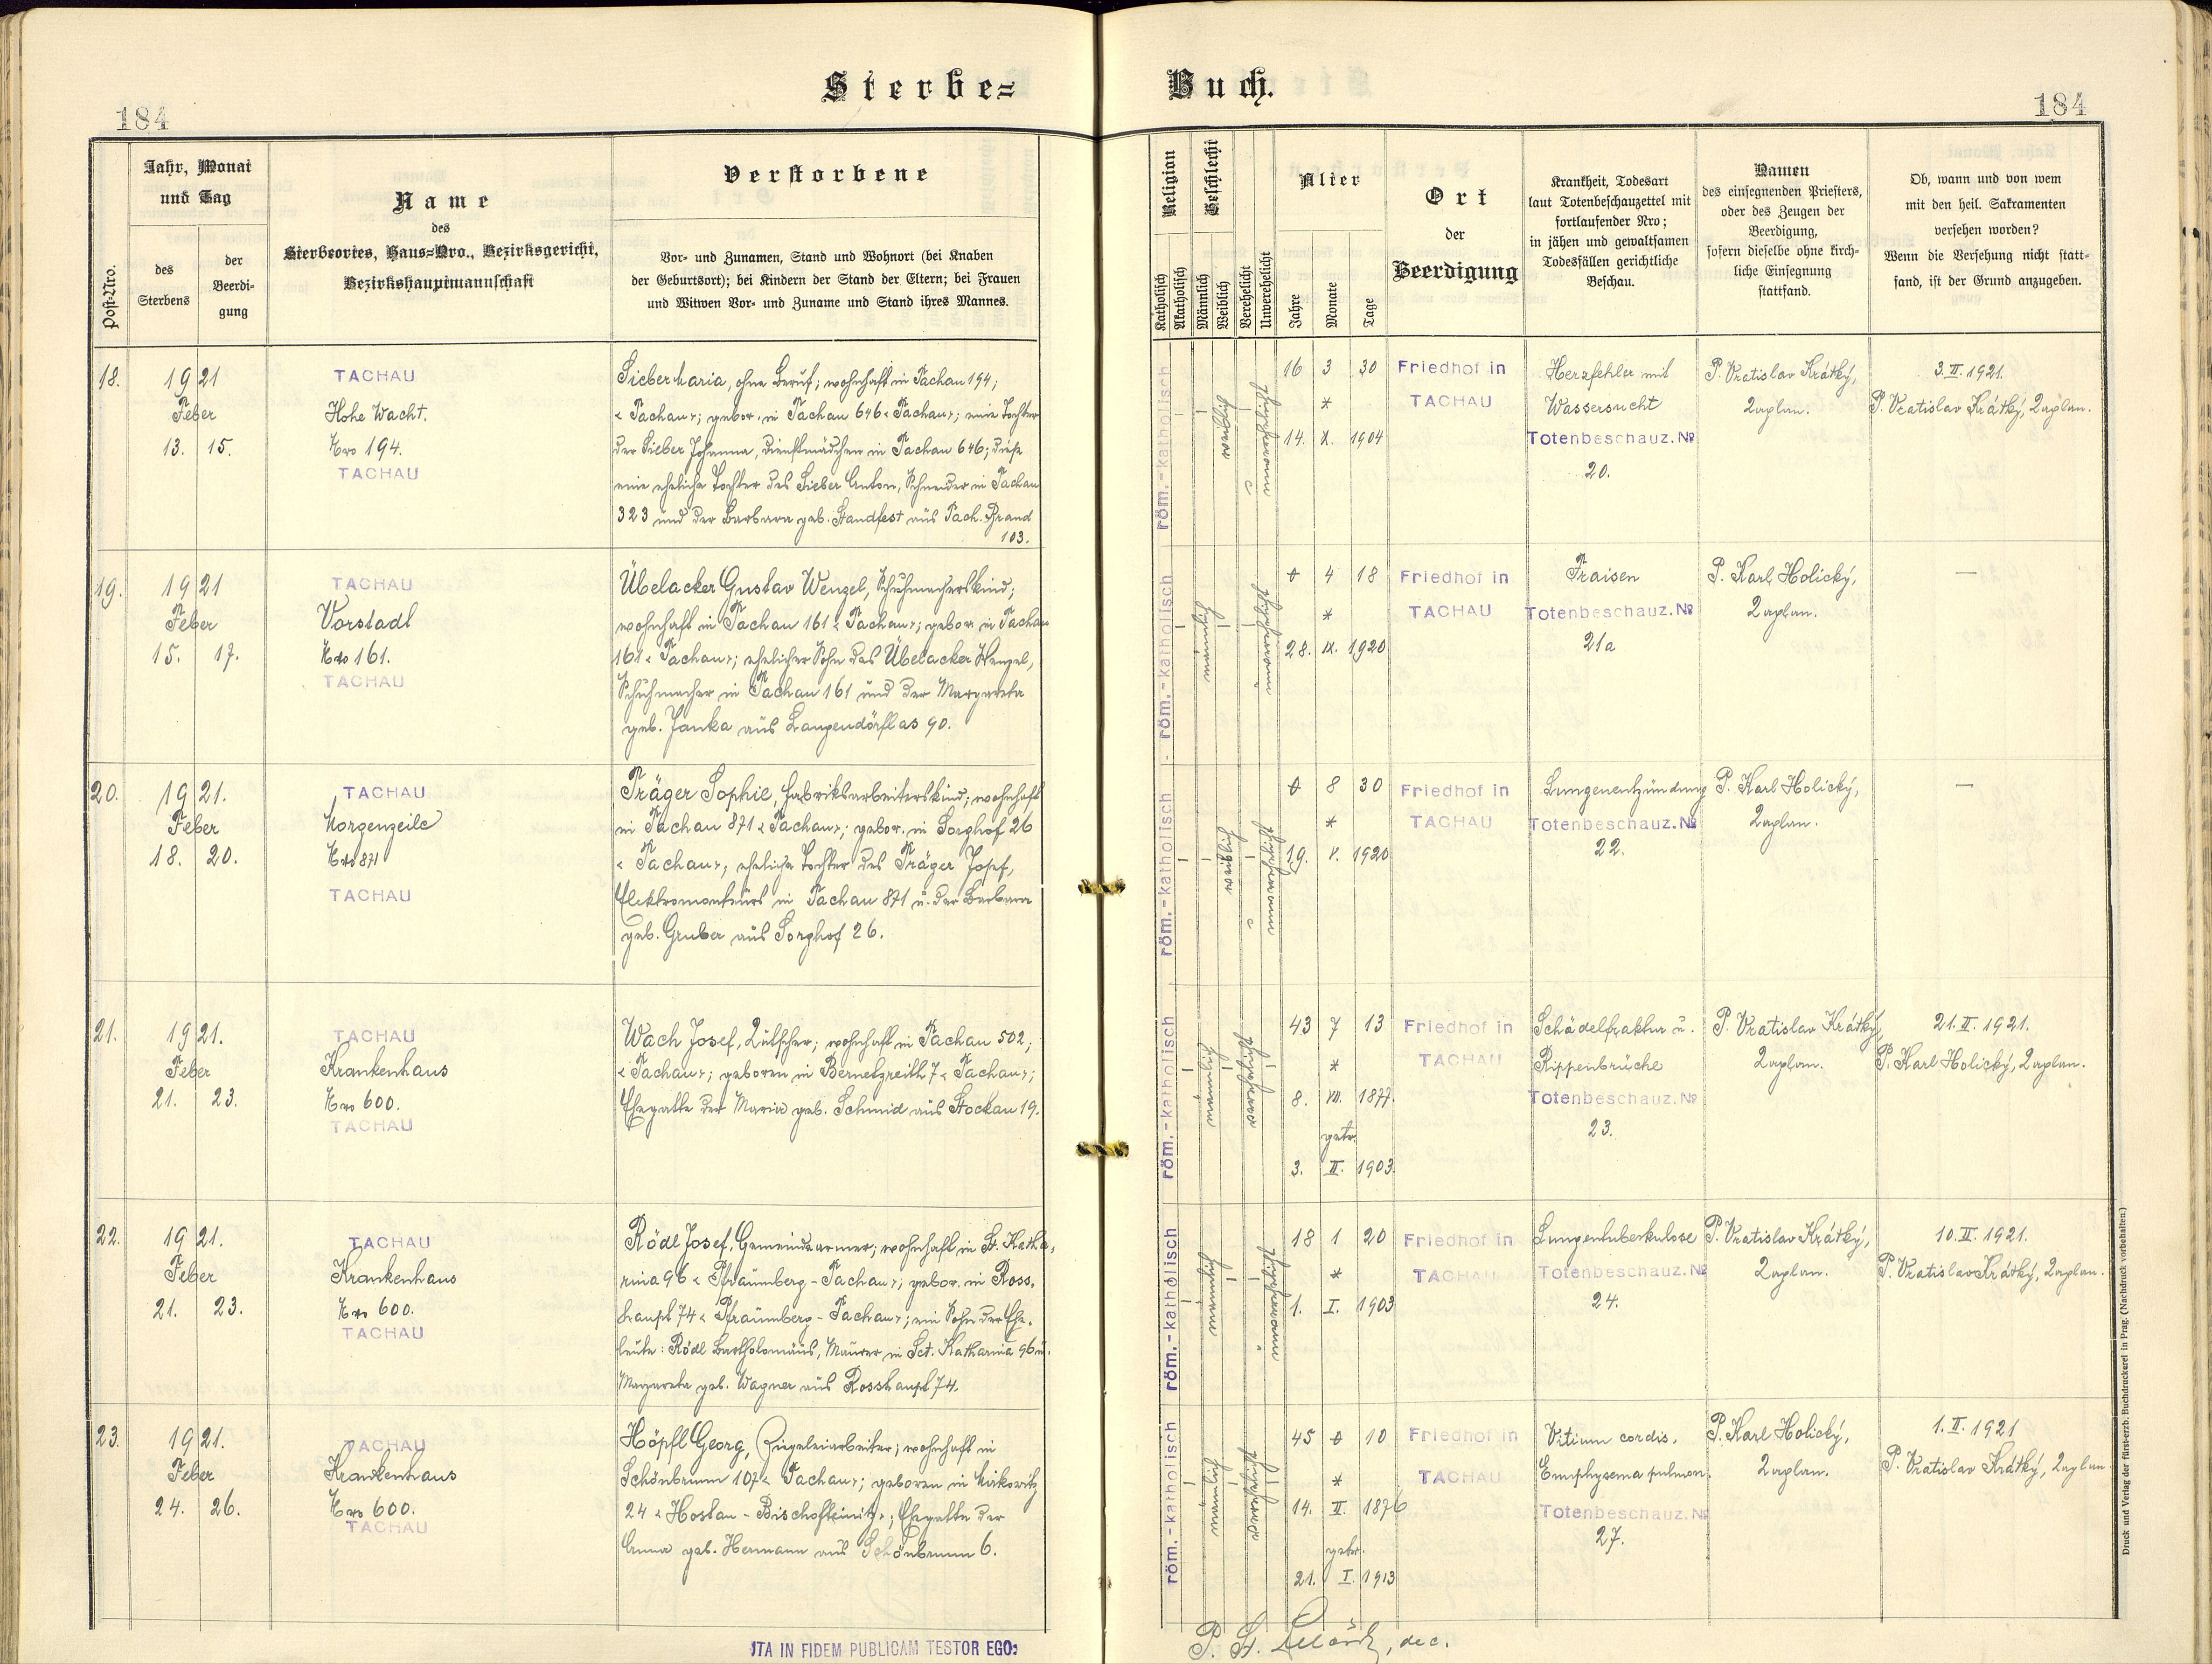 Sterbe=
Buch.
184
184
Post-Nro.
Jahr, Monat
und Tag
des
Sterbens
der
Beerdi-
gung
Name
des
Sterbeortes, Haus=Nro., Bezirksgericht,
Bezirkshauptmannschaft
Verstorbene
Vor- und Zunamen, Stand und Wohnort (bei Knaben
der Geburtsort); bei Kindern der Stand der Eltern; bei Frauen
und Witwen Vor- und Zuname und Stand ihres Mannes.
Religion
Katholisch
Akatholisch
Geschlecht
Männlich
Weiblich
Verehelicht
Unverehelicht
Alter
Jahre
Monate
Tage
Ort
der
Beerdigung
Krankheit, Todesart
laut Totenbeschauzettel mit
fortlaufender Nro;
in jähen und gewaltsamen
Todesfällen gerichtliche
Beschau.
Namen
des einsegnenden Priesters,
oder des Zeugen der
Beerdigung,
sofern dieselbe ohne kirch-
liche Einsegnung
stattfand.
Ob, wann und von wem
mit den heil. Sakramenten
versehen worden?
Wenn die Versehung nicht statt-
fand, ist der Grund anzugeben.
18.
1921
Feber
13. 15.
TACHAU
Hohe Wacht.
Nro 194.
TACHAU
Sieber Maria, ohne Beruf; wohnhaft in Tachau 194;
« Tachau »; gebor. in Tachau 646 « Tachau »; eine Tochter
der Sieber Johanna, Dienstmädchen in Tachau 646; diese
eine eheliche Tochter des Sieber Anton, Schneider in Tachau
323 und der Barbara geb. Standfest aus Tach. Brand
103.
röm.-katholisch
weiblich
unverehelicht
16 3 30
*
14. X. 1904
Friedhof in
TACHAU
Herzfehler mit
Wassersucht
Totenbeschauz. No
20.
P. Vratislav Krátký,
Kaplan.
3. II. 1921.
P. Vratislav Krátký, Kaplan.
19.
1921
Feber
15. 17.
TACHAU
Vorstadl
Nro 161.
TACHAU
Übelacker Gustav Wenzel, Schuhmacherskind;
wohnhaft in Tachau 161 « Tachau »; gebor. in Tachau
161 « Tachau »; ehelicher Sohn des Übelacker Wenzel,
Schuhmacher in Tachau 161 und der Margareta
geb. Janka aus Langendörflas 90.
röm.-katholisch
männlich
unverehelicht
0 4 18
*
28. IX. 1920
Friedhof in
TACHAU
Fraisen
Totenbeschauz. No
21a
P. Karl Holický,
Kaplan.
—
20.
1921.
Feber
18. 20.
TACHAU
Morgenzeile
Nro 871
TACHAU
Träger Sophie, Fabriksarbeiterskind; wohnhaft
in Tachau 871 « Tachau »; gebor. in Sorghof 26
« Tachau », eheliche Tochter des Träger Josef,
Elektromonteurs in Tachau 871 u. der Barbara
geb. Gruber aus Sorghof 26.
röm.-katholisch
weiblich
unverehelicht
0 8 30
*
19. V. 1920
Friedhof in
TACHAU
Lungenentzündung
Totenbeschauz. No
22.
P. Karl Holický,
Kaplan.
—
21.
1921.
Feber
21. 23.
TACHAU
Krankenhaus
Nro 600.
TACHAU
Wach Josef, Kutscher; wohnhaft in Tachau 502;
« Tachau »; geboren in Bernetzreith 7 « Tachau »;
Ehegatte der Maria geb. Schmid aus Stockau 19.
röm.-katholisch
männlich
verehelicht
43 7 13
*
8. VII. 1877.
getr.
3. II. 1903.
Friedhof in
TACHAU
Schädelfraktur u.
Rippenbrüche
Totenbeschauz. No
23.
P. Vratislav Krátký,
Kaplan.
21. II. 1921.
P. Karl Holický, Kaplan.
22.
1921.
Feber
21. 23.
TACHAU
Krankenhaus
Nro 600.
TACHAU
Rödl Josef, Gemeindearmer; wohnhaft in St. Katha-
rina 96 « Pfraumberg - Tachau »; gebor. in Ross-
haupt 74 « Pfraumberg - Tachau »; ein Sohn der Ehe-
leute: Rödl Bartholomäus, Maurer in Sct. Katharina 96 u.
Margareta geb. Wagner aus Rosshaupt 74.
röm.-katholisch
männlich
unverehelicht
18 1 20
*
1. I. 1903
Friedhof in
TACHAU
Lungentuberkulose
Totenbeschauz. No
24.
P. Vratislav Krátký,
Kaplan.
10. II. 1921.
P. Vratislav Krátký, Kaplan.
23.
1921.
Feber
24. 26.
TACHAU
Krankenhaus
Nro 600.
TACHAU
Höpfl Georg, Ziegeleiarbeiter; wohnhaft in
Schönbrunn 107 « Tachau »; geboren in Mirkowitz
24 « Hostau - Bischofteinitz »; Ehegatte der
Anna geb. Hermann aus Schönbrunn 6.
röm.-katholisch
männlich
verehelicht
45 0 10
*
14. II. 1876
getr.
21. I. 1913
Friedhof in
TACHAU
Vitium cordis.
Emphysema pulmon.
Totenbeschauz. No
27.
P. Karl Holický,
Kaplan.
1. II. 1921
P. Vratislav Krátký, Kaplan
ITA IN FIDEM PUBLICAM TESTOR EGO:
P. St. dec.
Druck und Verlag der fürst-erzb. Buchdruckerei in Prag. (Nachdruck vorbehalten.)